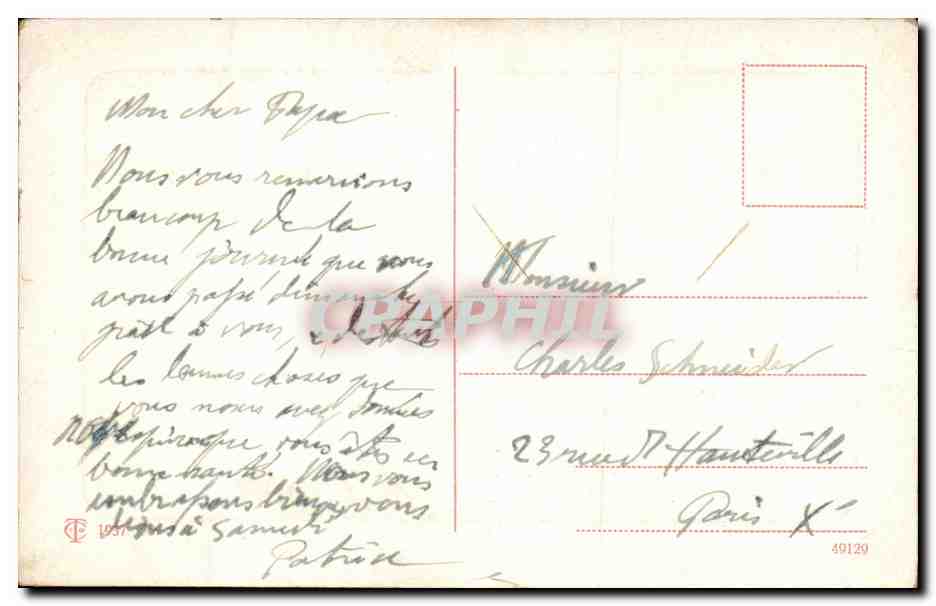 Mon cher Papa
Nous vous remercions
beaucoup de la
bonne journée que nous
avons passé dimanche
grâce à vous, et de toutes
les bonnes choses que
vous nous avez données
nous espérons que vous êtes en
bonne santé. Nous vous
embrassons bien
à Samedi
Patrice
Monsieur
Charles Schneider
23 rue d'Hauteville
Paris Xe
CRAPHIL
1937
49129